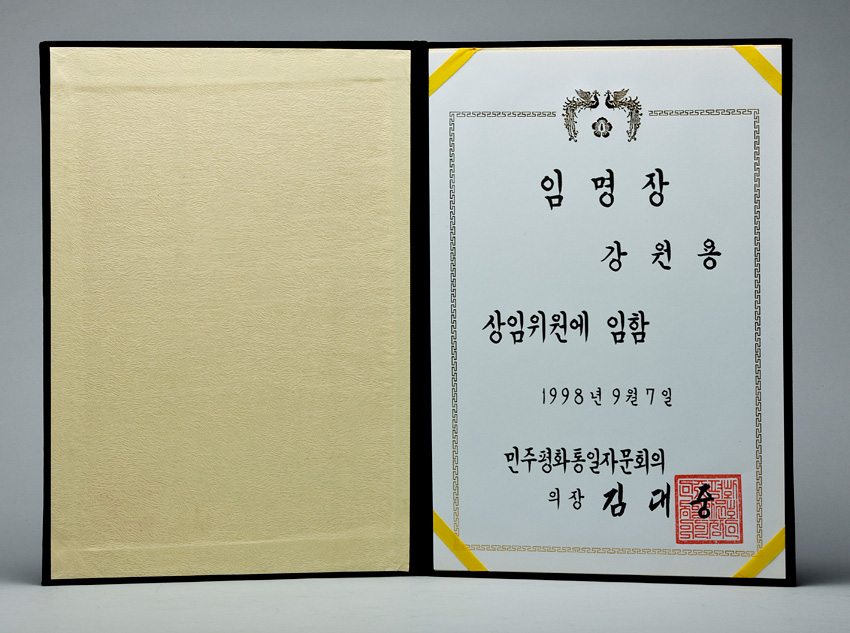 임명장
강원용
상임위원에 임함
1998년 9월 7일
민주평화통일자문회의
의장 김대중